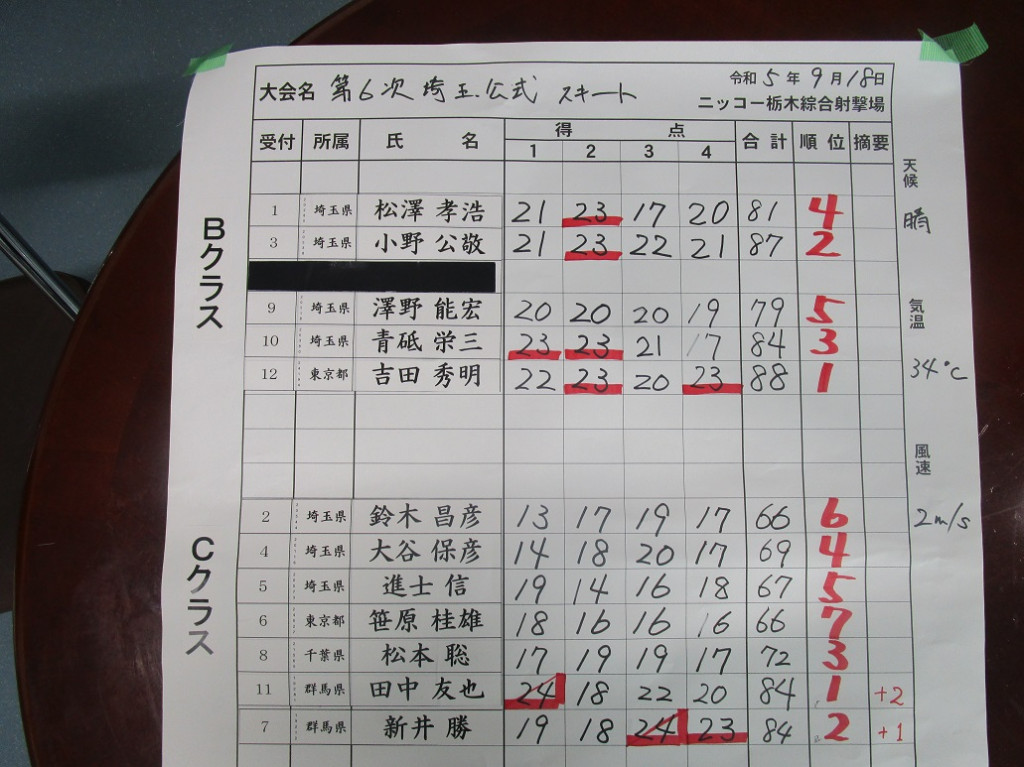 大会名 第6次埼玉公式 スキート 令和5年9月18日
ニッコー栃木綜合射撃場
受付 所属 氏名 得点 合計 順位 摘要
1 2 3 4
天候
晴
気温
34℃
風速
2m/s
Bクラス
1 埼玉県 松澤 孝浩 21 23 17 20 81 4
3 埼玉県 小野 公敬 21 23 22 21 87 2
9 埼玉県 澤野 能宏 20 20 20 19 79 5
10 埼玉県 青砥 栄三 23 23 21 17 84 3
12 東京都 吉田 秀明 22 23 20 23 88 1
Cクラス
2 埼玉県 鈴木 昌彦 13 17 19 17 66 6
4 埼玉県 大谷 保彦 14 18 20 17 69 4
5 埼玉県 進士 信 19 14 16 18 67 5
6 東京都 笹原 桂雄 18 16 16 16 66 7
8 千葉県 松本 聡 17 19 19 17 72 3
11 群馬県 田中 友也 24 18 22 20 84 1 +2
7 群馬県 新井 勝 19 18 24 23 84 2 +1